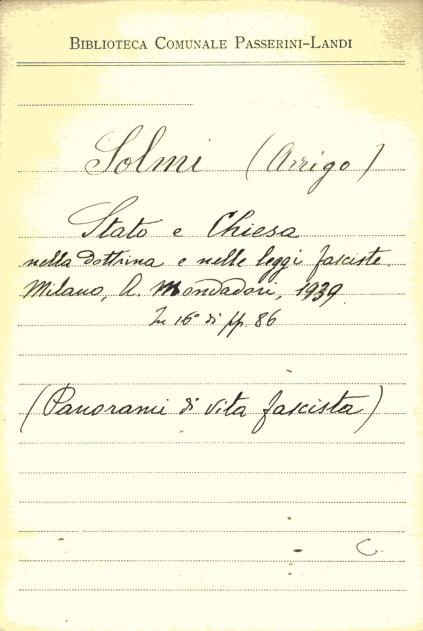 BIBLIOTECA COMUNALE PASSERINI-LANDI
Solmi (Arrigo)
Stato e Chiesa
nella dottrina e nelle leggi fasciste.
Milano, A. Mondadori, 1939
In 16° di pp. 86
(Panorami di vita fascista)
C.